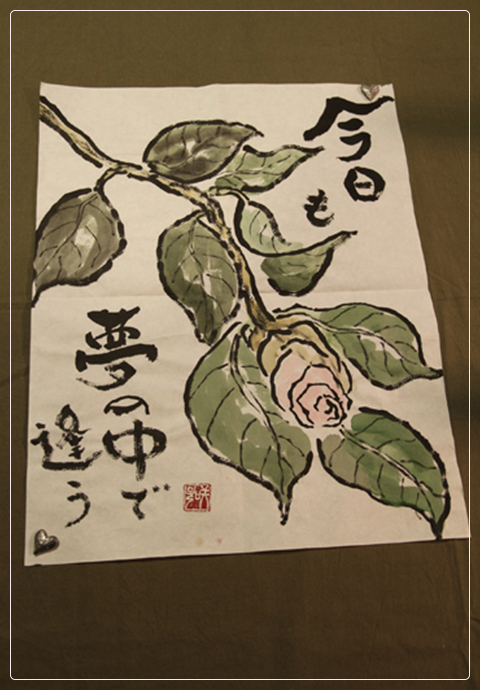 今日
も
夢の中で
逢う